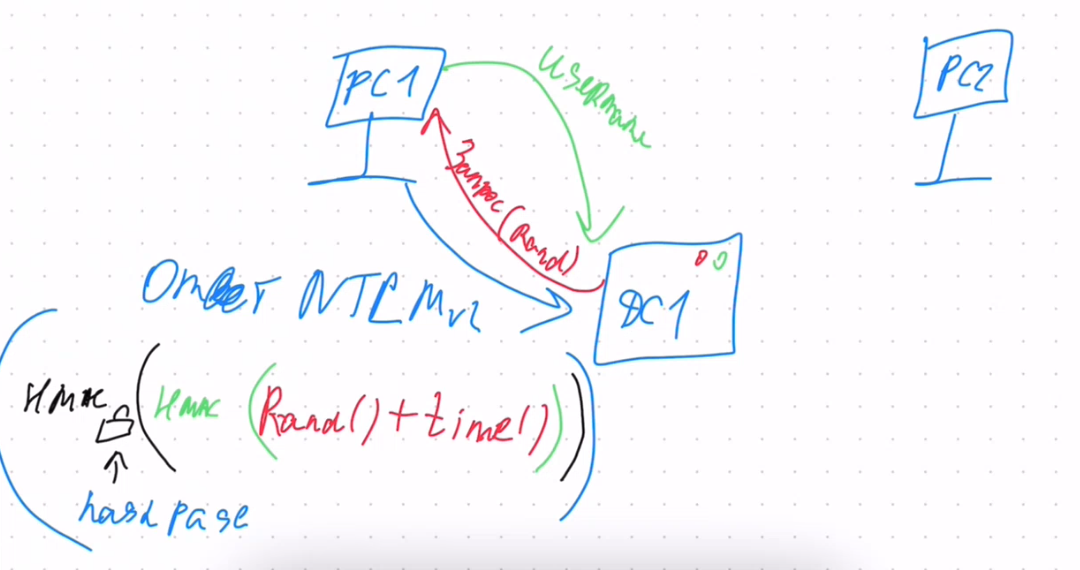 PC1
PC2
username
Запрос (Rand)
DC1
Ответ NTLMv2
HMAC (HMAC (Rand()+time()))
hash pase